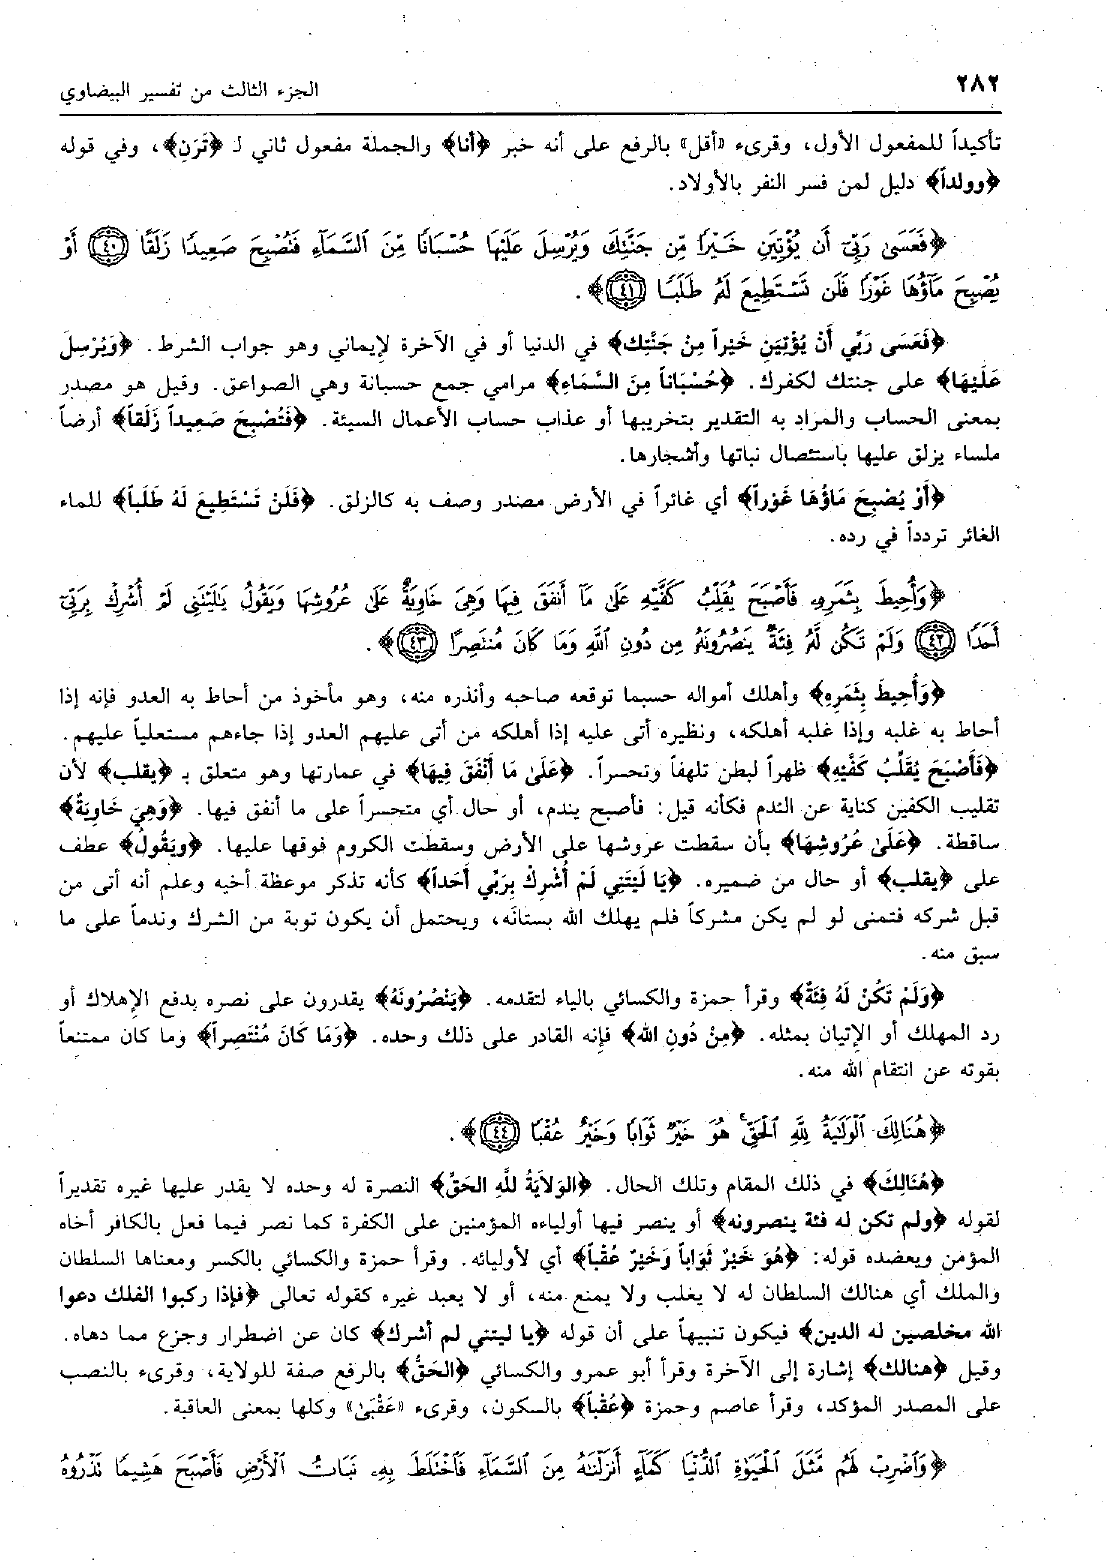 ٢٨٢
الجزء الثالث من تفسير البيضاوي
تأكيداً للمفعول الأول، وقرىء «أقل» بالرفع على أنه خبر ﴿أنا﴾ والجملة مفعول ثاني لـ ﴿تَرَنِ﴾، وفي قوله
﴿وولداً﴾ دليل لمن فسر النفر بالأولاد.
﴿فَعَسَىٰ رَبِّيٓ أَن يُؤْتِيَنِ خَيْرًا مِّن جَنَّتِكَ وَيُرْسِلَ عَلَيْهَا حُسْبَانًا مِّنَ ٱلسَّمَآءِ فَتُصْبِحَ صَعِيدًا زَلَقًا ٤٠ أَوْ
يُصْبِحَ مَآؤُهَا غَوْرًا فَلَن تَسْتَطِيعَ لَهُۥ طَلَبًا ٤١﴾.
﴿فَعَسَى رَبِّي أَنْ يُؤْتِيَنِ خَيْراً مِنْ جَنَّتِكَ﴾ في الدنيا أو في الآخرة لإيماني وهو جواب الشرط. ﴿وَيُرْسِلَ
عَلَيْهَا﴾ على جنتك لكفرك. ﴿حُسْبَاناً مِنَ السَّمَاءِ﴾ مرامي جمع حسبانة وهي الصواعق. وقيل هو مصدر
بمعنى الحساب والمراد به التقدير بتخريبها أو عذاب حساب الأعمال السيئة. ﴿فَتُصْبِحَ صَعِيداً زَلَقاً﴾ أرضاً
ملساء يزلق عليها باستئصال نباتها وأشجارها.
﴿أَوْ يُصْبِحَ مَاؤُهَا غَوْراً﴾ أي غائراً في الأرض مصدر وصف به كالزلق. ﴿فَلَنْ تَسْتَطِيعَ لَهُ طَلَباً﴾ للماء
الغائر تردداً في رده.
﴿وَأُحِيطَ بِثَمَرِهِۦ فَأَصْبَحَ يُقَلِّبُ كَفَّيْهِ عَلَىٰ مَآ أَنفَقَ فِيهَا وَهِيَ خَاوِيَةٌ عَلَىٰ عُرُوشِهَا وَيَقُولُ يَٰلَيْتَنِي لَمْ أُشْرِكْ بِرَبِّيٓ
أَحَدًا ٤٢ وَلَمْ تَكُن لَّهُۥ فِئَةٌ يَنصُرُونَهُۥ مِن دُونِ ٱللَّهِ وَمَا كَانَ مُنتَصِرًا ٤٣﴾.
﴿وَأُحِيطَ بِثَمَرِهِ﴾ وأهلك أمواله حسبما توقعه صاحبه وأنذره منه، وهو مأخوذ من أحاط به العدو فإنه إذا
أحاط به غلبه وإذا غلبه أهلكه، ونظيره أتى عليه إذا أهلكه من أتى عليهم العدو إذا جاءهم مستعلياً عليهم.
﴿فَأَصْبَحَ يُقَلِّبُ كَفَّيْهِ﴾ ظهراً لبطن تلهفاً وتحسراً. ﴿عَلَىٰ مَا أَنْفَقَ فِيهَا﴾ في عمارتها وهو متعلق بـ ﴿يقلب﴾ لأن
تقليب الكفين كناية عن الندم فكأنه قيل: فأصبح يندم، أو حال أي متحسراً على ما أنفق فيها. ﴿وَهِيَ خَاوِيَةٌ﴾
ساقطة. ﴿عَلَىٰ عُرُوشِهَا﴾ بأن سقطت عروشها على الأرض وسقطت الكروم فوقها عليها. ﴿وَيَقُولُ﴾ عطف
على ﴿يقلب﴾ أو حال من ضميره. ﴿يَا لَيْتَنِي لَمْ أُشْرِكْ بِرَبِّي أَحَداً﴾ كأنه تذكر موعظة أخيه وعلم أنه أتى من
قبل شركه فتمنى لو لم يكن مشركاً فلم يهلك الله بستانه، ويحتمل أن يكون توبة من الشرك وندماً على ما
سبق منه.
﴿وَلَمْ تَكُنْ لَهُ فِئَةٌ﴾ وقرأ حمزة والكسائي بالياء لتقدمه. ﴿يَنْصُرُونَهُ﴾ يقدرون على نصره بدفع الإهلاك أو
رد المهلك أو الإتيان بمثله. ﴿مِنْ دُونِ الله﴾ فإنه القادر على ذلك وحده. ﴿وَمَا كَانَ مُنْتَصِراً﴾ وما كان ممتنعاً
بقوته عن انتقام الله منه.
﴿هُنَالِكَ ٱلْوَلَٰيَةُ لِلَّهِ ٱلْحَقِّ هُوَ خَيْرٌ ثَوَابًا وَخَيْرٌ عُقْبًا ٤٤﴾.
﴿هُنَالِكَ﴾ في ذلك المقام وتلك الحال. ﴿الوَلايَةُ للَّهِ الحَقِّ﴾ النصرة له وحده لا يقدر عليها غيره تقديراً
لقوله ﴿ولم تكن له فئة ينصرونه﴾ أو ينصر فيها أولياءه المؤمنين على الكفرة كما نصر فيما فعل بالكافر أخاه
المؤمن ويعضده قوله: ﴿هُوَ خَيْرٌ ثَوَاباً وَخَيْرٌ عُقْباً﴾ أي لأوليائه. وقرأ حمزة والكسائي بالكسر ومعناها السلطان
والملك أي هنالك السلطان له لا يغلب ولا يمنع منه، أو لا يعبد غيره كقوله تعالى ﴿فإذا ركبوا الفلك دعوا
الله مخلصين له الدين﴾ فيكون تنبيهاً على أن قوله ﴿يا ليتني لم أشرك﴾ كان عن اضطرار وجزع مما دهاه.
وقيل ﴿هنالك﴾ إشارة إلى الآخرة وقرأ أبو عمرو والكسائي ﴿الحَقُّ﴾ بالرفع صفة للولاية، وقرىء بالنصب
على المصدر المؤكد، وقرأ عاصم وحمزة ﴿عُقْباً﴾ بالسكون، وقرىء «عَقْبَىٰ» وكلها بمعنى العاقبة.
﴿وَٱضْرِبْ لَهُم مَّثَلَ ٱلْحَيَوٰةِ ٱلدُّنْيَا كَمَآءٍ أَنزَلْنَٰهُ مِنَ ٱلسَّمَآءِ فَٱخْتَلَطَ بِهِۦ نَبَاتُ ٱلْأَرْضِ فَأَصْبَحَ هَشِيمًا تَذْرُوهُ